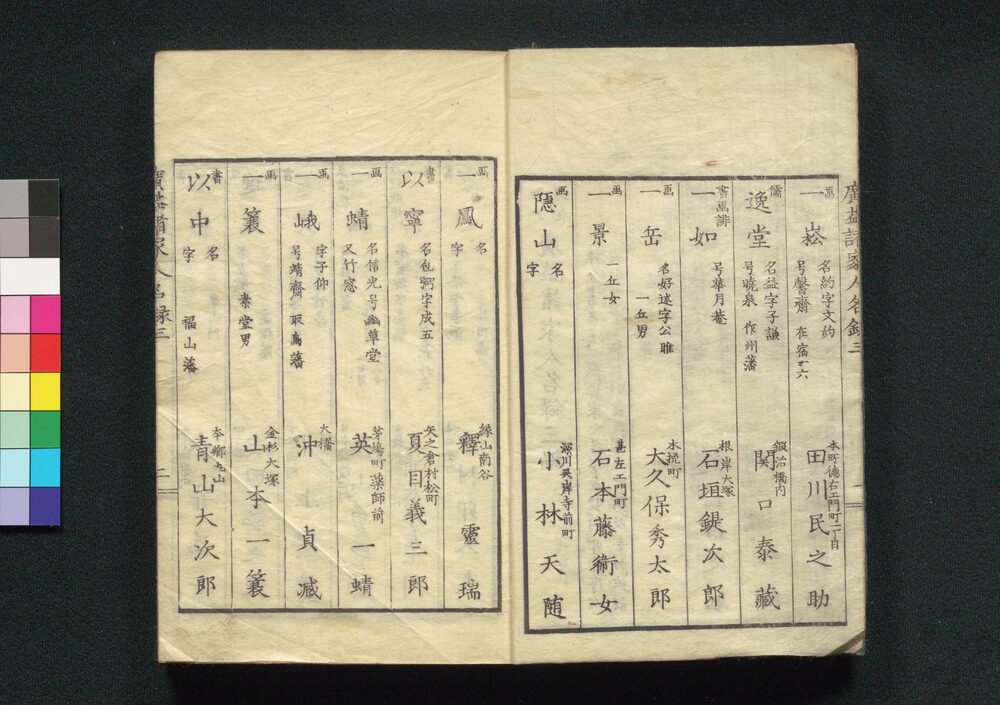 画
一崧
名約字文約
号馨齋 在宿十六
本町徳右エ門町二丁目
田川民之助
儒
逸堂
名益字子謙
号暁泉 作州藩
鍜冶橋内
関口泰藏
書画誹
一如
号華月菴
根岸大塚
石垣鍉次郎
画
一岳
名好述字公雎
一丘男
木挽町
大久保秀太郎
画
一景
一丘女
甚左エ門町
石本藤衛女
画
隠山
名
字
深川寺前町
小林天随
画
一鳳
名
字
縁山南谷
釋靈瑞
書
以寧
名包弼字成五
矢之倉村松町
夏目義三郎
画
一蜻
名信光号幽草堂
又竹窓
茅場町薬師前
英一蜻
画
一峨
字子仰
号靖齋 取高藩
大橋
沖貞
画
一簑
素堂男
金杉大塚
山本一簑
書
以中
名
字 福山藩
本郷丸山
青山大次郎